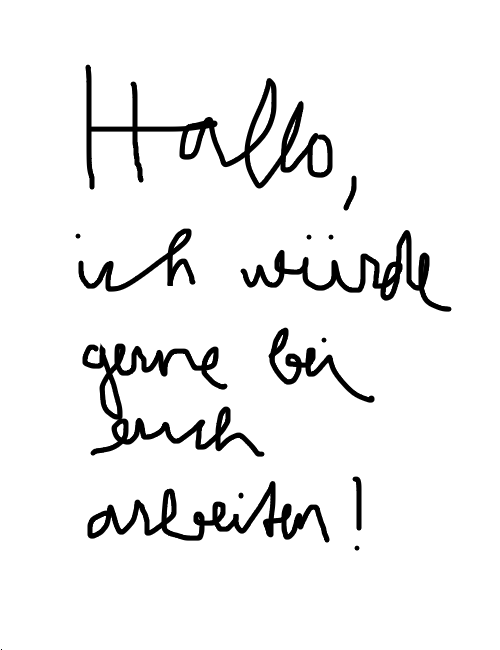 Hallo,
ich würde
gerne bei
euch
arbeiten!